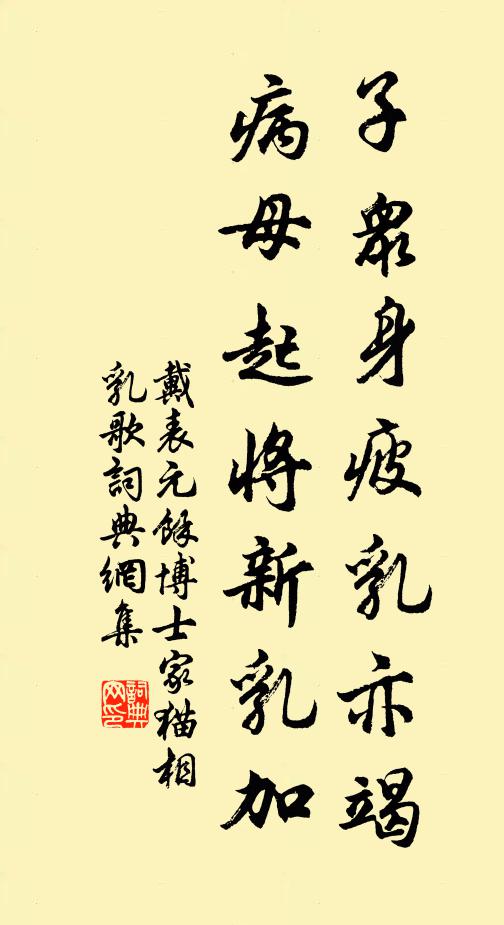 子衆身疲乳亦竭
病母起將新乳加
戴表元餘博士家猫相
乳歌詞典網集
詞典
网印